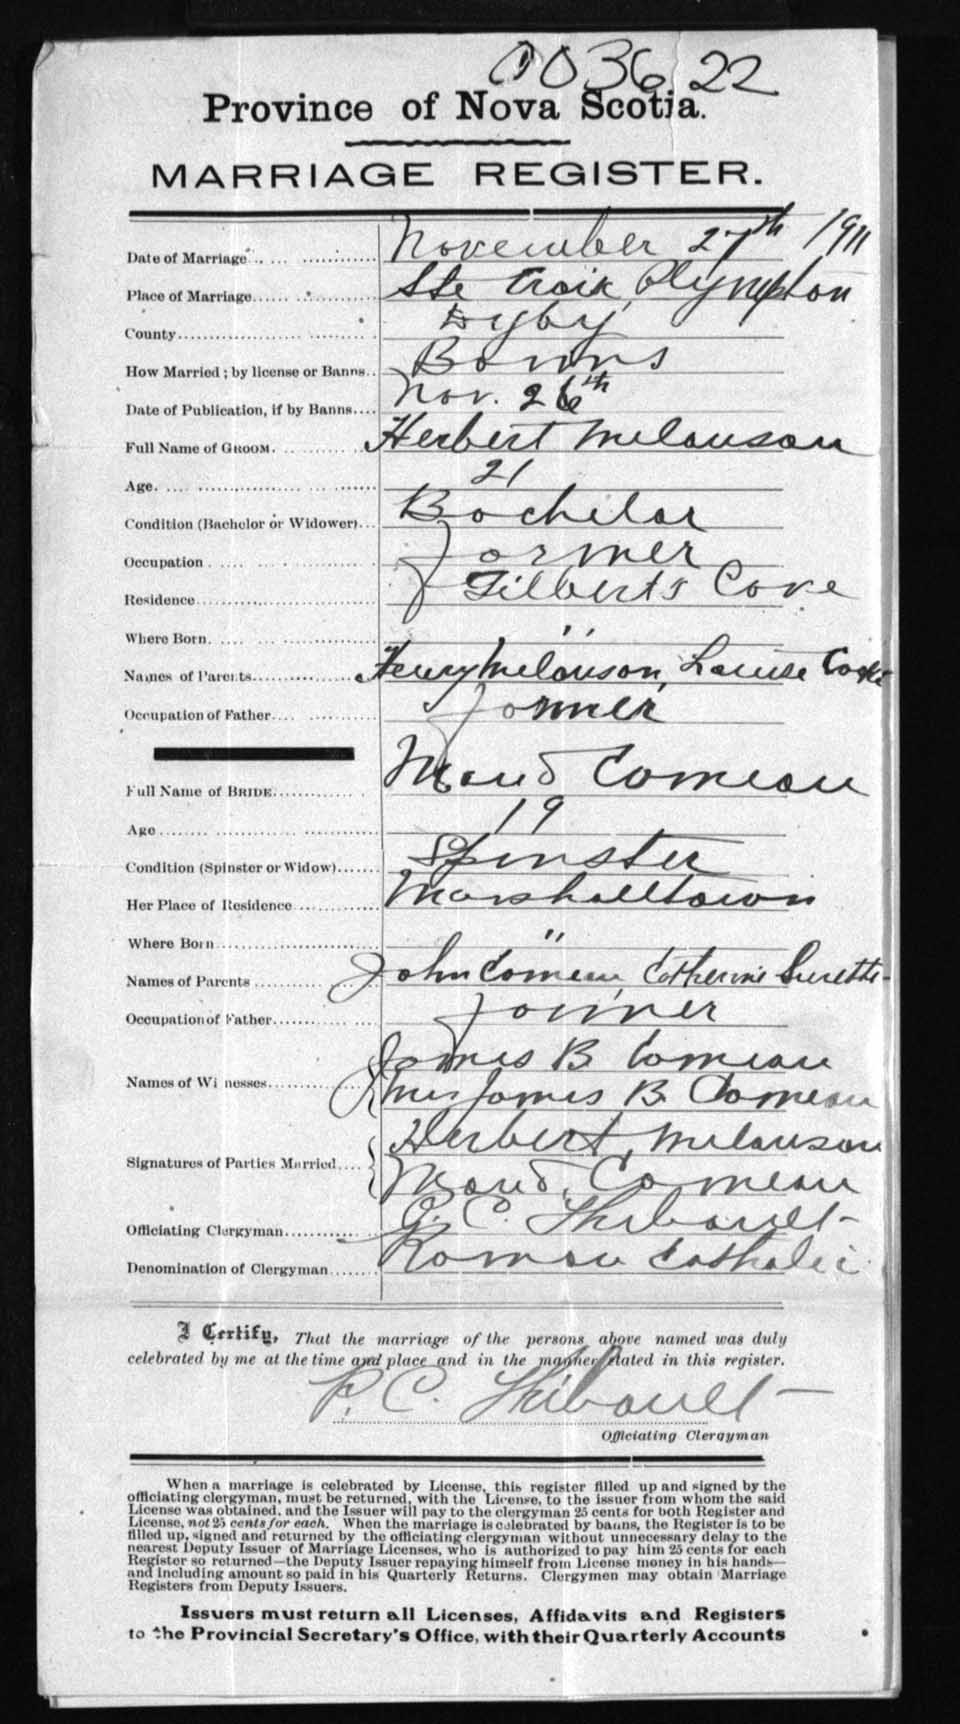 003622
Province of Nova Scotia.
MARRIAGE REGISTER.
Date of Marriage November 27th 1911
Place of Marriage Ste Croix, Plympton
County Digby
How Married; by license or Banns Banns
Date of Publication, if by Banns Nov. 26th
Full Name of GROOM Herbert Melanson
Age 21
Condition (Bachelor or Widower) Bachelor
Occupation Farmer
Residence Gilberts Cove
Where Born "
Names of Parents Henry Melanson, Louise
Occupation of Father Farmer
Full Name of BRIDE Maud Comeau
Age 19
Condition (Spinster or Widow) Spinster
Her Place of Residence Marshalltown
Where Born "
Names of Parents John Comeau, Catherine Surette
Occupation of Father Farmer
Names of Witnesses James B Comeau
Mrs James B. Comeau
Signatures of Parties Married Herbert Melanson
Maud Comeau
Officiating Clergyman C. Thibault
Denomination of Clergyman Roman Catholic
I Certify, That the marriage of the persons above named was duly
celebrated by me at the time and place and in the manner stated in this register.
P. C. Thibault
Officiating Clergyman
When a marriage is celebrated by License, this register filled up and signed by the
officiating clergyman, must be returned, with the License, to the issuer from whom the said
License was obtained, and the Issuer will pay to the clergyman 25 cents for both Register and
License, not 25 cents for each. When the marriage is celebrated by banns, the Register is to be
filled up, signed and returned by the officiating clergyman without unnecessary delay to the
nearest Deputy Issuer of Marriage Licenses, who is authorized to pay him 25 cents for each
Register so returned—the Deputy Issuer repaying himself from License money in his hands—
and including amount so paid in his Quarterly Returns. Clergymen may obtain Marriage
Registers from Deputy Issuers.
Issuers must return all Licenses, Affidavits and Registers
to the Provincial Secretary's Office, with their Quarterly Accounts